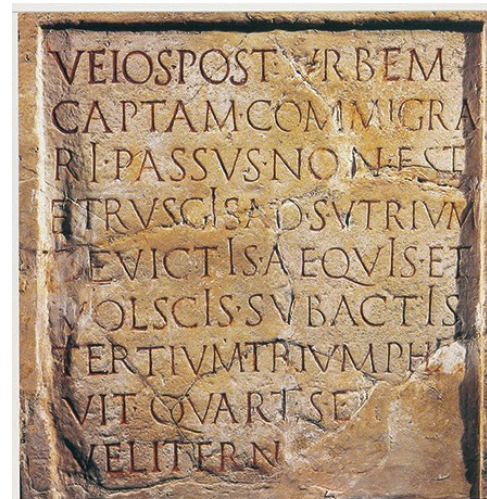 VEIOS·POST·VRBEM
CAPTAM·COMMIGRA
RI·PASSVS·NON·EST
ETRVSCIS·AD·SVTRIVM
DEVICTIS·AEQVIS·ET
VOLSCIS·SVBACTIS
TERTIVM·TRIVMPHA
VIT·QVART·SE
VELITERN